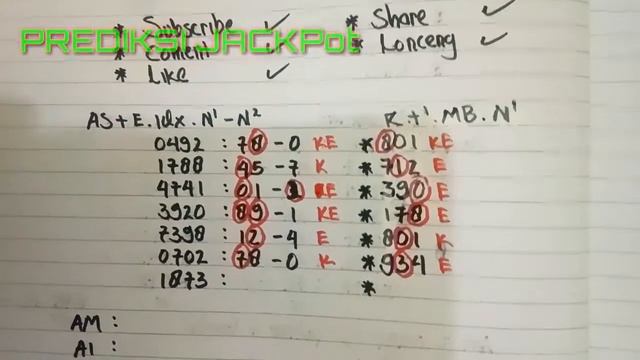 * Subscribe ✓ * Share ✓
PREDIKSI JACKPot
* Coment * Lonceng ✓
* Like ✓
AS+E.Idx.N¹-N² K+¹.MB.N¹
0492 : 78-0 KE *801 KE
1788 : 45-7 K *712 E
4741 : 01-1 KE *390 E
3920 : 89-1 KE *178 E
7398 : 12-4 E *801 K
0702 : 78-0 K *934 E
1873 : *
AM :
AI :